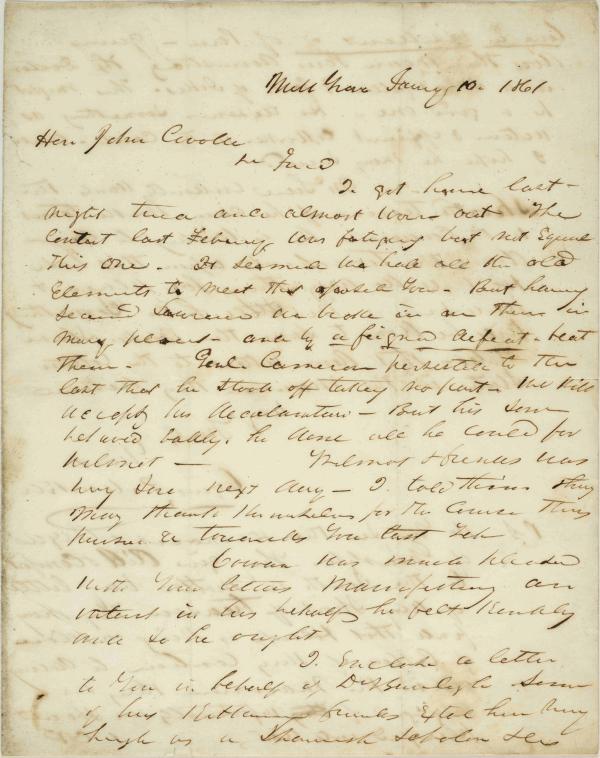 Mill Grove Jany 10. 1861
Hon. John Covode
Dr Frnd
I got home last
night tired and almost worn out The
contest last Febuary was fatigueing but not Equal
this one. It seemed we had all the old
Elements to meet that opposed You. But having
secured Lawrence we broke in on them in
many places and by a feigned defeat beat
them. Genl. Cameron persisted to the
last that he stood off taking no part. We will
accept his decalaration — But his son
behaved badly. he done all he could for
Wilmot — Wilmot & friends was
very sore next day — I told them they
may thank themselves for the course they
pursued towards You last Feb
Cowan was much pleased
with Your letters manifesting an
interest in his behalf he felt kindly
and so he ought
I Enclose a letter
to You in behalf of Dr Burleigh Some
of his Kittanning friends Extol him very
high as a Spanish Scholar